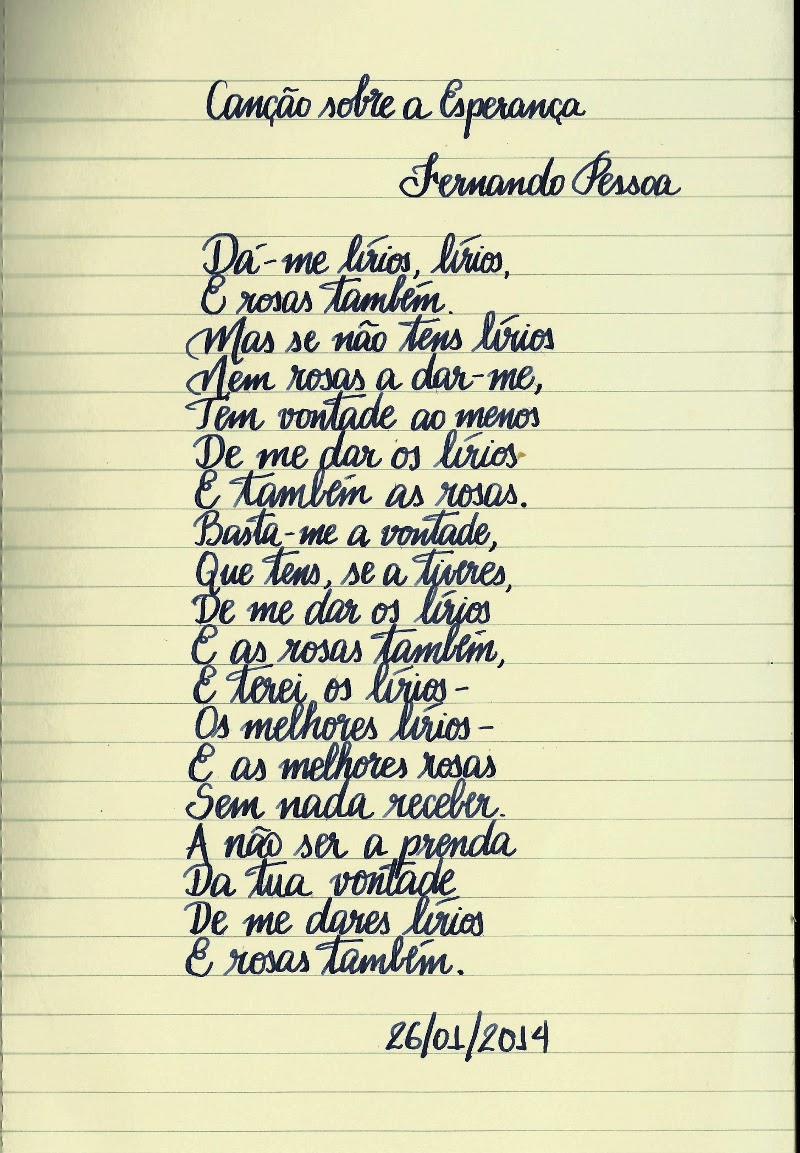 Canção sobre a Esperança
Fernando Pessoa
Dá-me lírios, lírios,
E rosas também.
Mas se não tens lírios
Nem rosas a dar-me,
Tem vontade ao menos
De me dar os lírios
E também as rosas.
Basta-me a vontade,
Que tens, se a tiveres,
De me dar os lírios
E as rosas também,
E terei os lírios -
Os melhores lírios -
E as melhores rosas
Sem nada receber.
A não ser a prenda
Da tua vontade
De me dares lírios
E rosas também.
26/01/2014